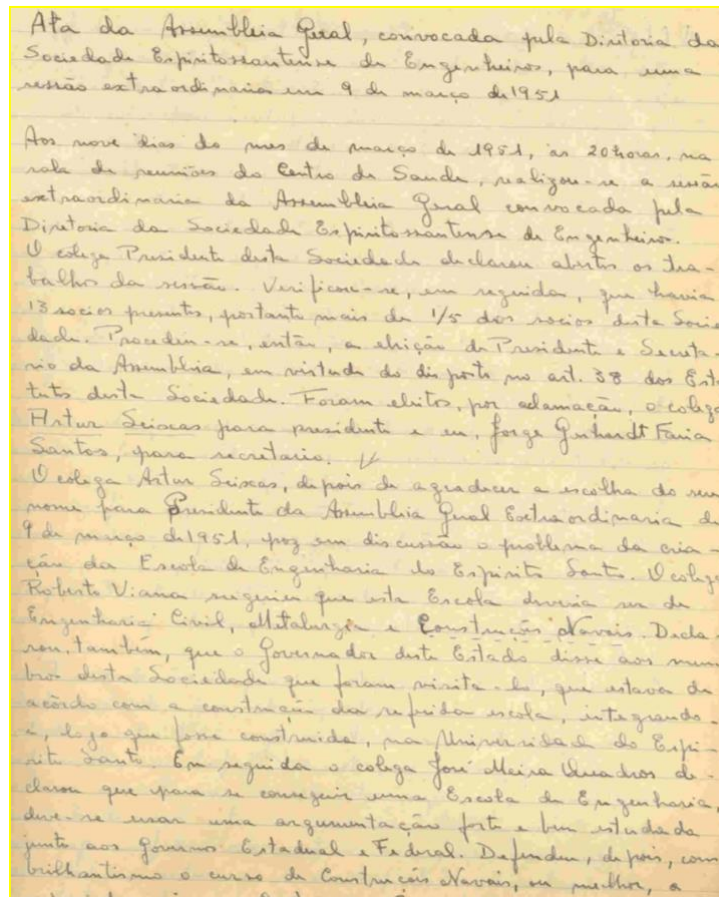 Ata da Assembleia Geral, convocada pela Diretoria da
Sociedade Espiritossantense de Engenheiros, para uma
sessão extraordinaria em 9 de março de 1951
Aos nove dias do mes de março de 1951, às 20 horas, na
sala de reuniões do Centro de Saude, realizou-se a sessão
extraordinaria da Assembleia Geral convocada pela
Diretoria da Sociedade Espiritossantense de Engenheiros.
O colega Presidente desta Sociedade declarou abertos os tra-
balhos da sessão. Verificou-se, em seguida, que havia
13 socios presentes, portanto mais de 1/5 dos socios desta Socie
dade. Procedeu-se, então, a eleição de Presidente e Secreta-
rio da Assembleia, em virtude do disposto no art. 38 dos Esta
tutos desta Sociedade. Foram eleitos, por aclamação, o colega
Artur Seixas para presidente e eu, Jorge Faria
Santos, para secretario.
O colega Artur Seixas, depois de agradecer a escolha do seu
nome para Presidente da Assembleia Geral Extraordinaria de
9 de março de 1951, poz em discussão o problema da cria-
ção da Escola de Engenharia do Espirito Santo. O colega
Roberto Viana sugeriu que esta Escola deveria ser de
Engenharia Civil, Metalurgia e Construções Navais. Decla-
rou, também, que o Governador deste Estado disse aos mem
bros desta Sociedade que foram visita-lo, que estava de
acôrdo com a construção da referida escola, integrando-
a, logo que fosse construida, na Universidade do Espi-
rito Santo. Em seguida o colega José Meira Quadros de-
clarou que para se conseguir uma Escola de Engenharia,
deve-se usar uma argumentação forte e bem estudada
junto aos Governos Estadual e Federal. Defendeu, depois, com
brilhantismo o curso de Construções Navais, ou melhor, a